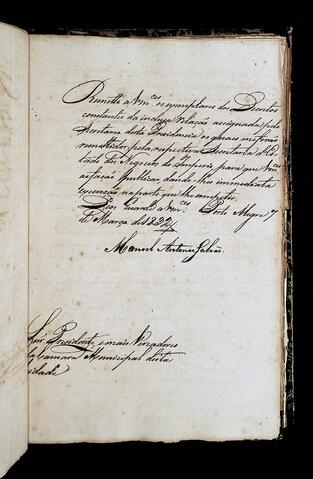 Remetto a Vm.ces os exemplares dos Decretos
constantes da incluza relação assignada pelo
Secretario desta Presidencia os quaes me forão
remettidos pela respectiva Secretaria d'Es-
tado dos Negocios do Imperio, para que Vm.ces
os fação publicar, dando-lhes immediata
execução na parte que lhes competir.
Deos Guarde a Vm.ces Porto Alegre 7
de Março de 1832
Manoel Antonio Galvão
Snr. Presidente, e mais Vereadores
da Camara Municipal desta
Cidade